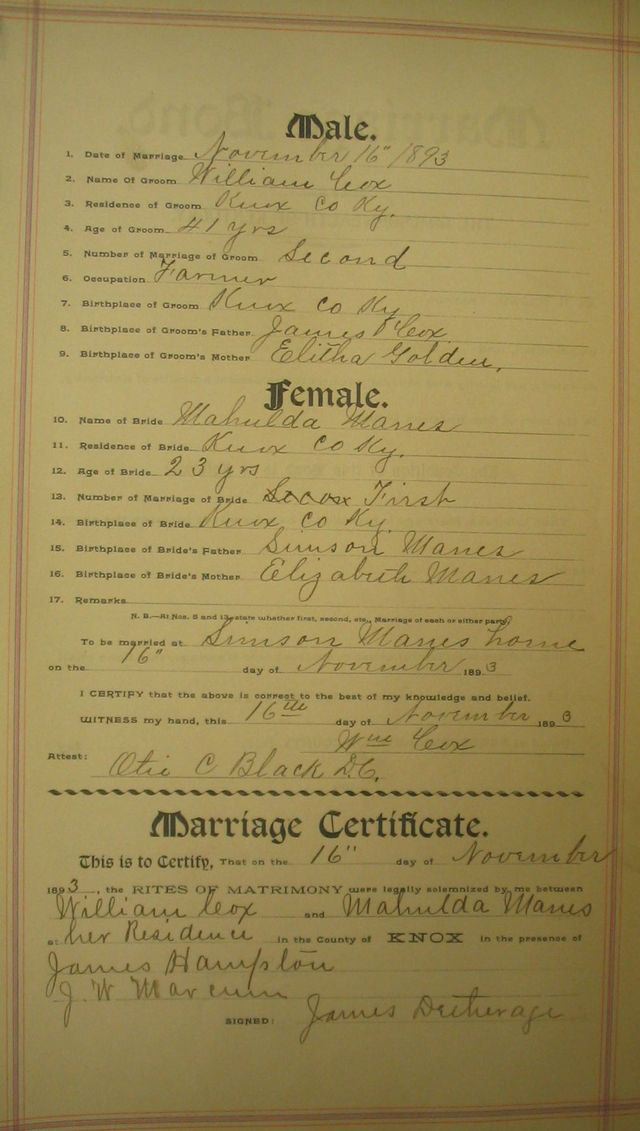 Male.
1. Date of Marriage November 16" 1893
2. Name Of Groom William Cox
3. Residence of Groom Knox Co Ky.
4. Age of Groom 41 yrs
5. Number of Marriage of Groom Second
6. Occupation Farmer
7. Birthplace of Groom Knox Co Ky
8. Birthplace of Groom's Father James Cox
9. Birthplace of Groom's Mother Elitha Golden,
Female.
10. Name of Bride Mahulda Manes
11. Residence of Bride Knox Co Ky.
12. Age of Bride 23 yrs
13. Number of Marriage of Bride First
14. Birthplace of Bride Knox Co Ky
15. Birthplace of Bride's Father Simson Manes
16. Birthplace of Bride's Mother Elizabeth Manes
17. Remarks
N. B.—At Nos. 5 and 13, state whether first, second, etc., Marriage of each or either party.
To be married at Simson Manes home
on the 16" day of November 1893
I CERTIFY that the above is correct to the best of my knowledge and belief.
WITNESS my hand, this 16th day of November 1893
Wm Cox
Attest: Otis C Black D.C.
Marriage Certificate.
This is to Certify, That on the 16" day of November
1893, the RITES OF MATRIMONY were legally solemnized by me between
William Cox and Mahulda Manes
at her Residence in the County of KNOX in the presence of
James Hampton
J. W Marcum
SIGNED: James Detherage